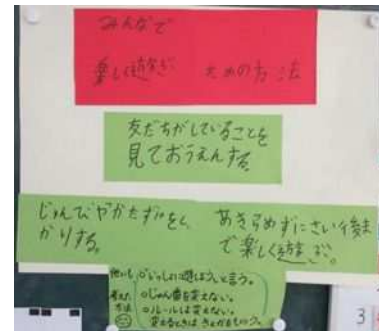 みんなで
楽しく遊ぶ ための方法
友だちがしていることを
見ておうえんする。
じゅんびやかたずけをしっ
かりする。
あきらめずにさい後ま
で楽しく遊ぶ。
他にも
考えた
方法
○いっしょに遊ぼう。と言う。
○じゅん番を変えない。
○ルールは変えない。
変えるときは
3